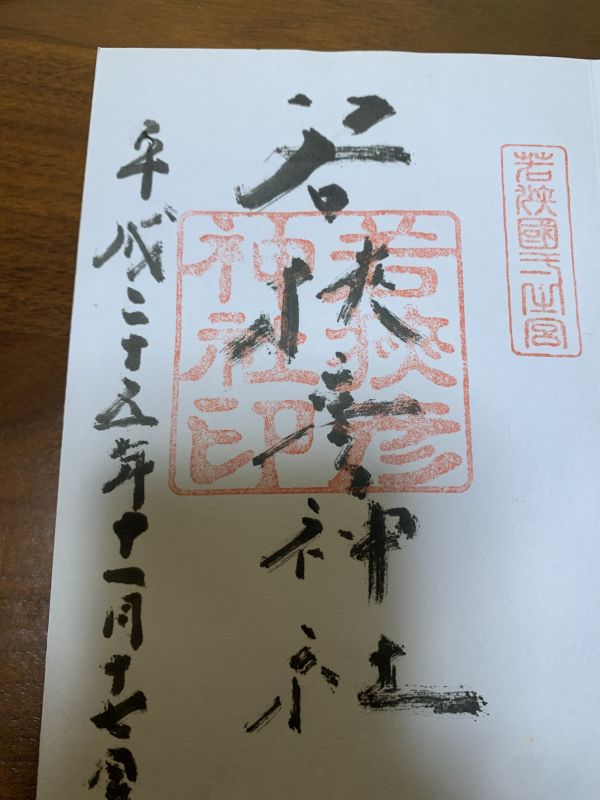 若狹國一之宮
若狭彦神社
若狹彦
神社印
平成二十五年十一月十七日